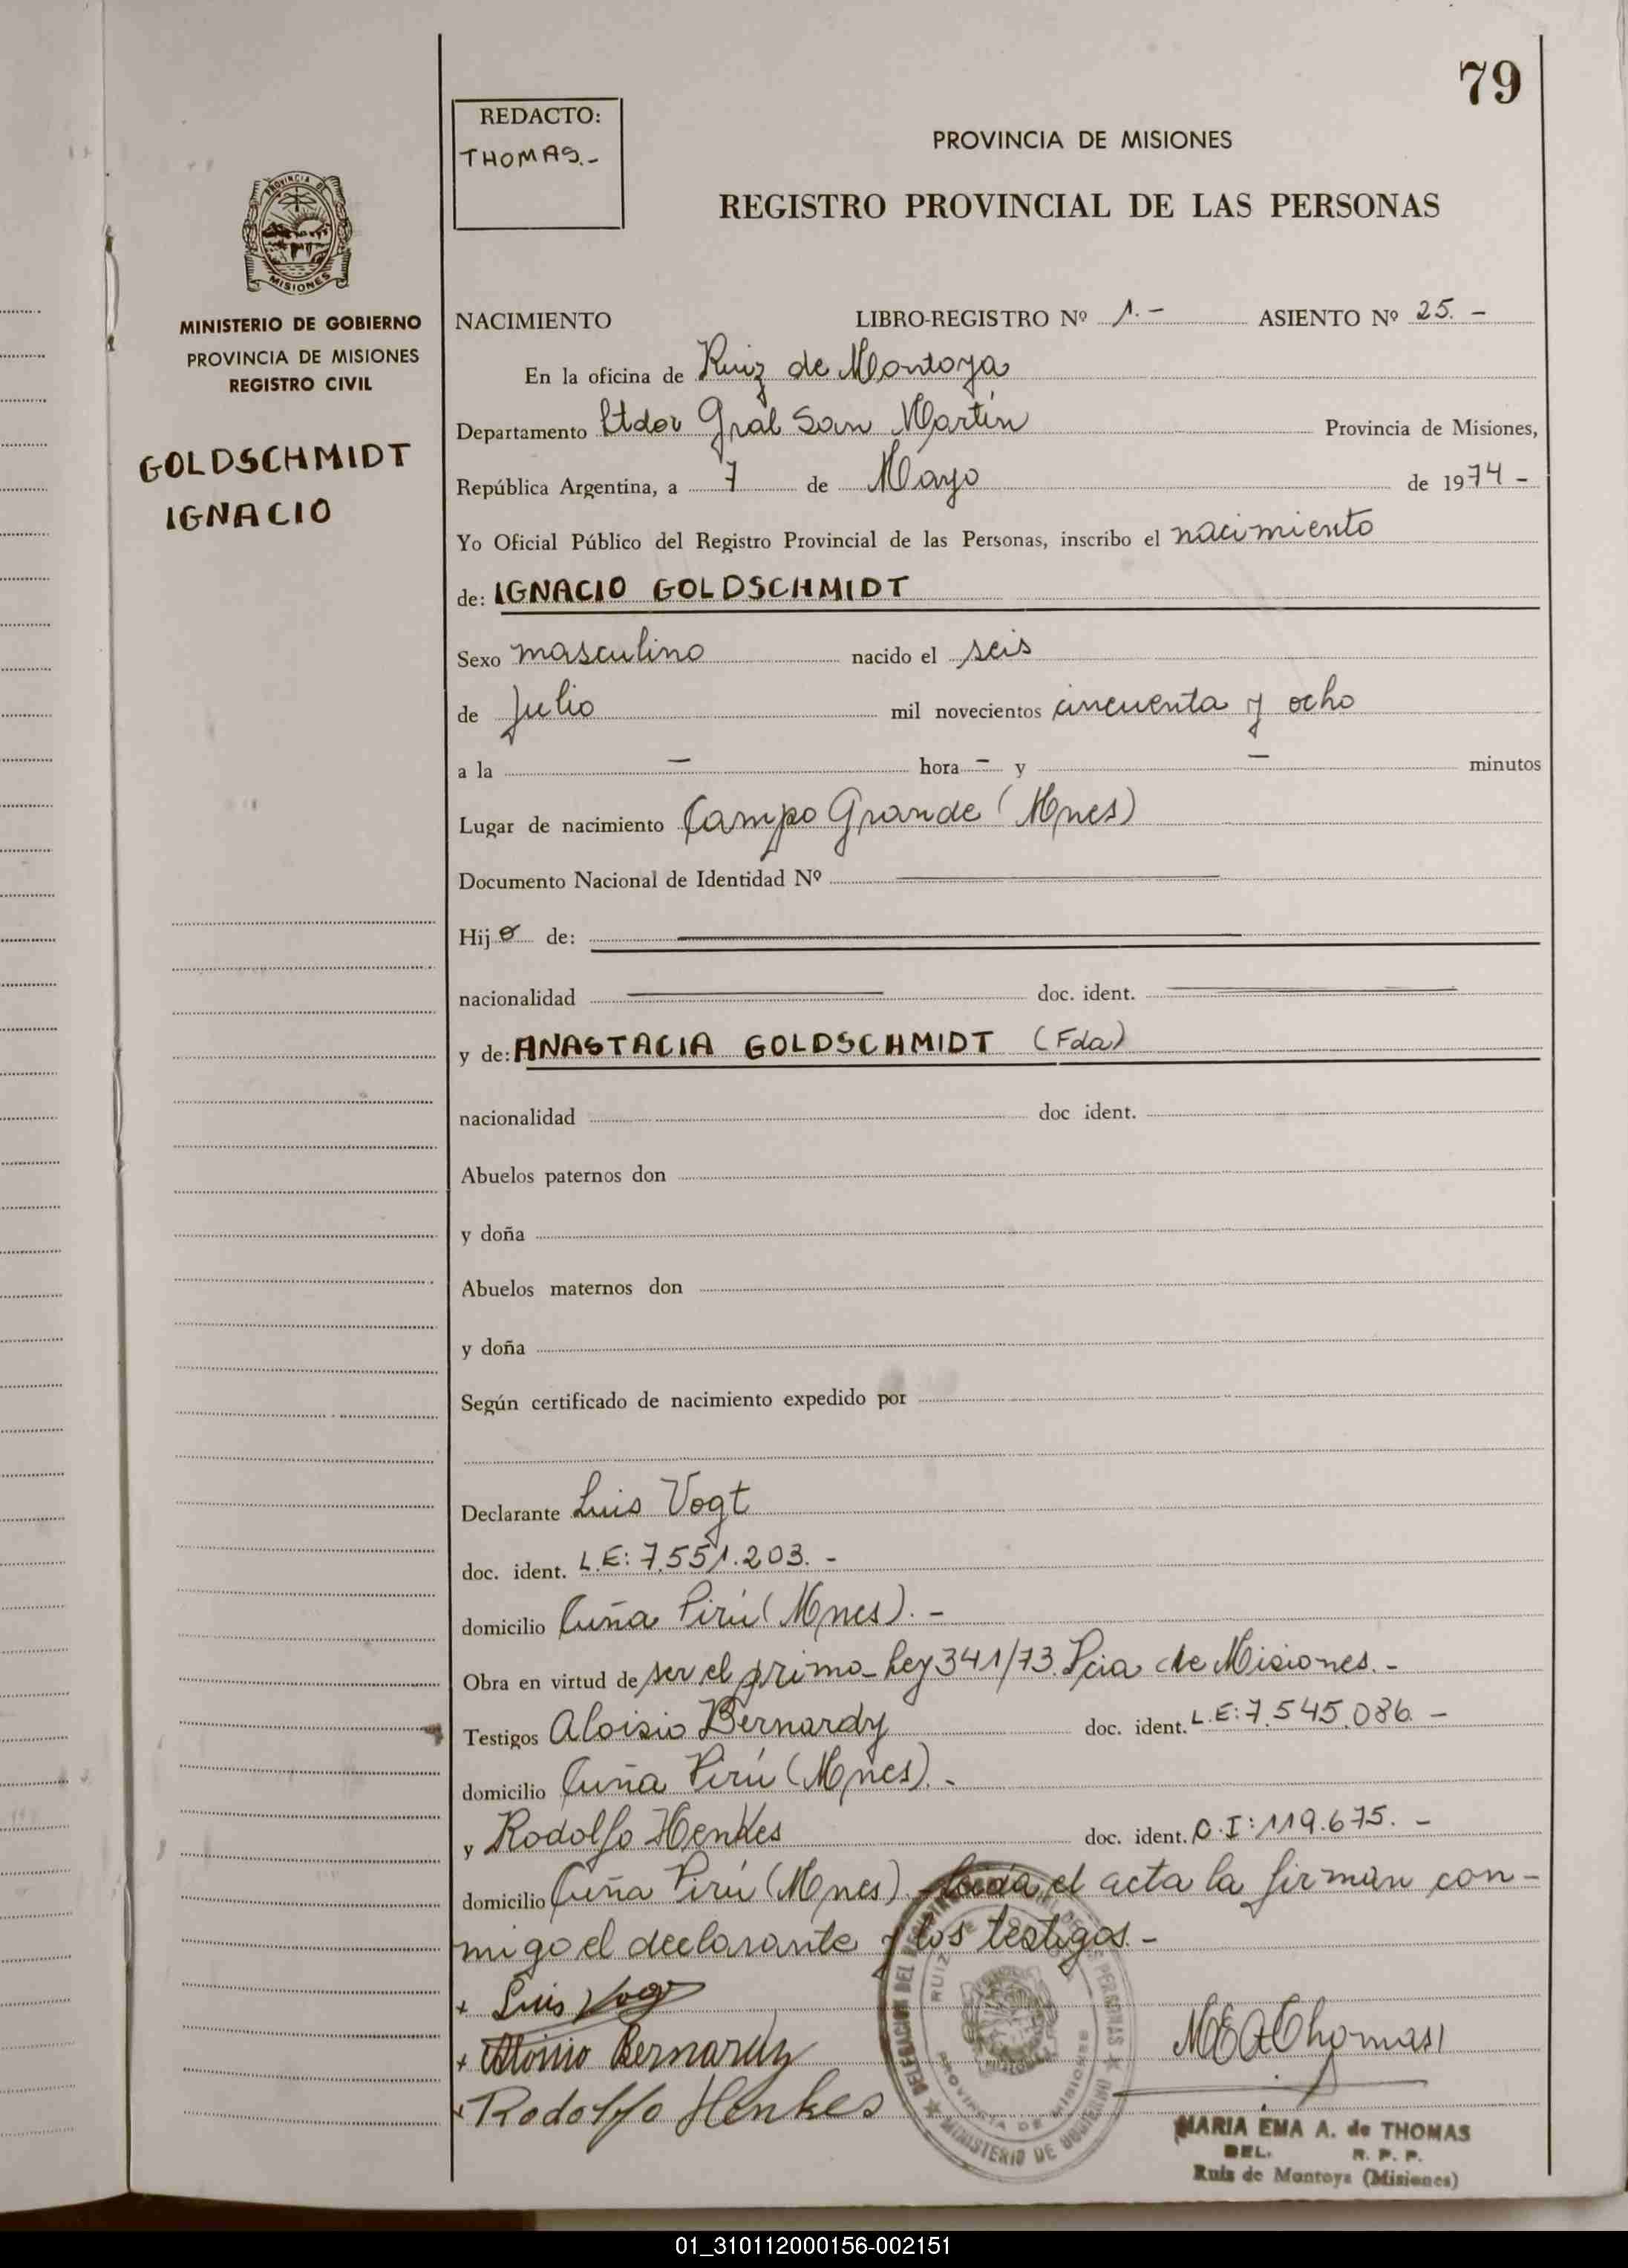 79
REDACTO:
THOMAS.-
PROVINCIA DE MISIONES
REGISTRO PROVINCIAL DE LAS PERSONAS
PROVINCIA DE
MISIONES
MINISTERIO DE GOBIERNO
PROVINCIA DE MISIONES
REGISTRO CIVIL
GOLDSCHMIDT
IGNACIO
NACIMIENTO LIBRO-REGISTRO Nº 1.- ASIENTO Nº 25.-
En la oficina de Ruiz de Montoya
Departamento Ltdor Gral San Martín Provincia de Misiones,
República Argentina, a 7 de Mayo de 1974-
Yo Oficial Público del Registro Provincial de las Personas, inscribo el nacimiento
de: IGNACIO GOLDSCHMIDT
Sexo masculino nacido el seis
de Julio mil novecientos cincuenta y ocho
a la - hora - y - minutos
Lugar de nacimiento Campo Grande (Mnes)
Documento Nacional de Identidad Nº
Hijo de:
nacionalidad doc. ident.
y de: ANASTACIA GOLDSCHMIDT (Fda)
nacionalidad doc ident.
Abuelos paternos don
y doña
Abuelos maternos don
y doña
Según certificado de nacimiento expedido por
Declarante Luis Vogt
doc. ident. L.E: 7.551.203.-
domicilio Cuña Pirú (Mnes).-
Obra en virtud de ser el primo-Ley 341/73. Pcia de Misiones.-
Testigos Aloisio Bernardy doc. ident. L.E: 7.545.086.-
domicilio Cuña Pirú (Mnes).-
y Rodolfo Henkes doc. ident. C.I: 119.675.-
domicilio Cuña Pirú (Mnes). Leída el acta la firman con-
migo el declarante y los testigos.-
+ Luis Vogt
+ Bernardy
+ Rodolfo Henkes
MEAThomas
DELEGACION DEL PERSONAS
RUIZ DE
PROVINCIA DE MISIONES
MINISTERIO DE GOBIERNO
MARIA EMA A. de THOMAS
DEL. R. P. P.
Ruiz de Montoya (Misiones)
01_310112000156-002151